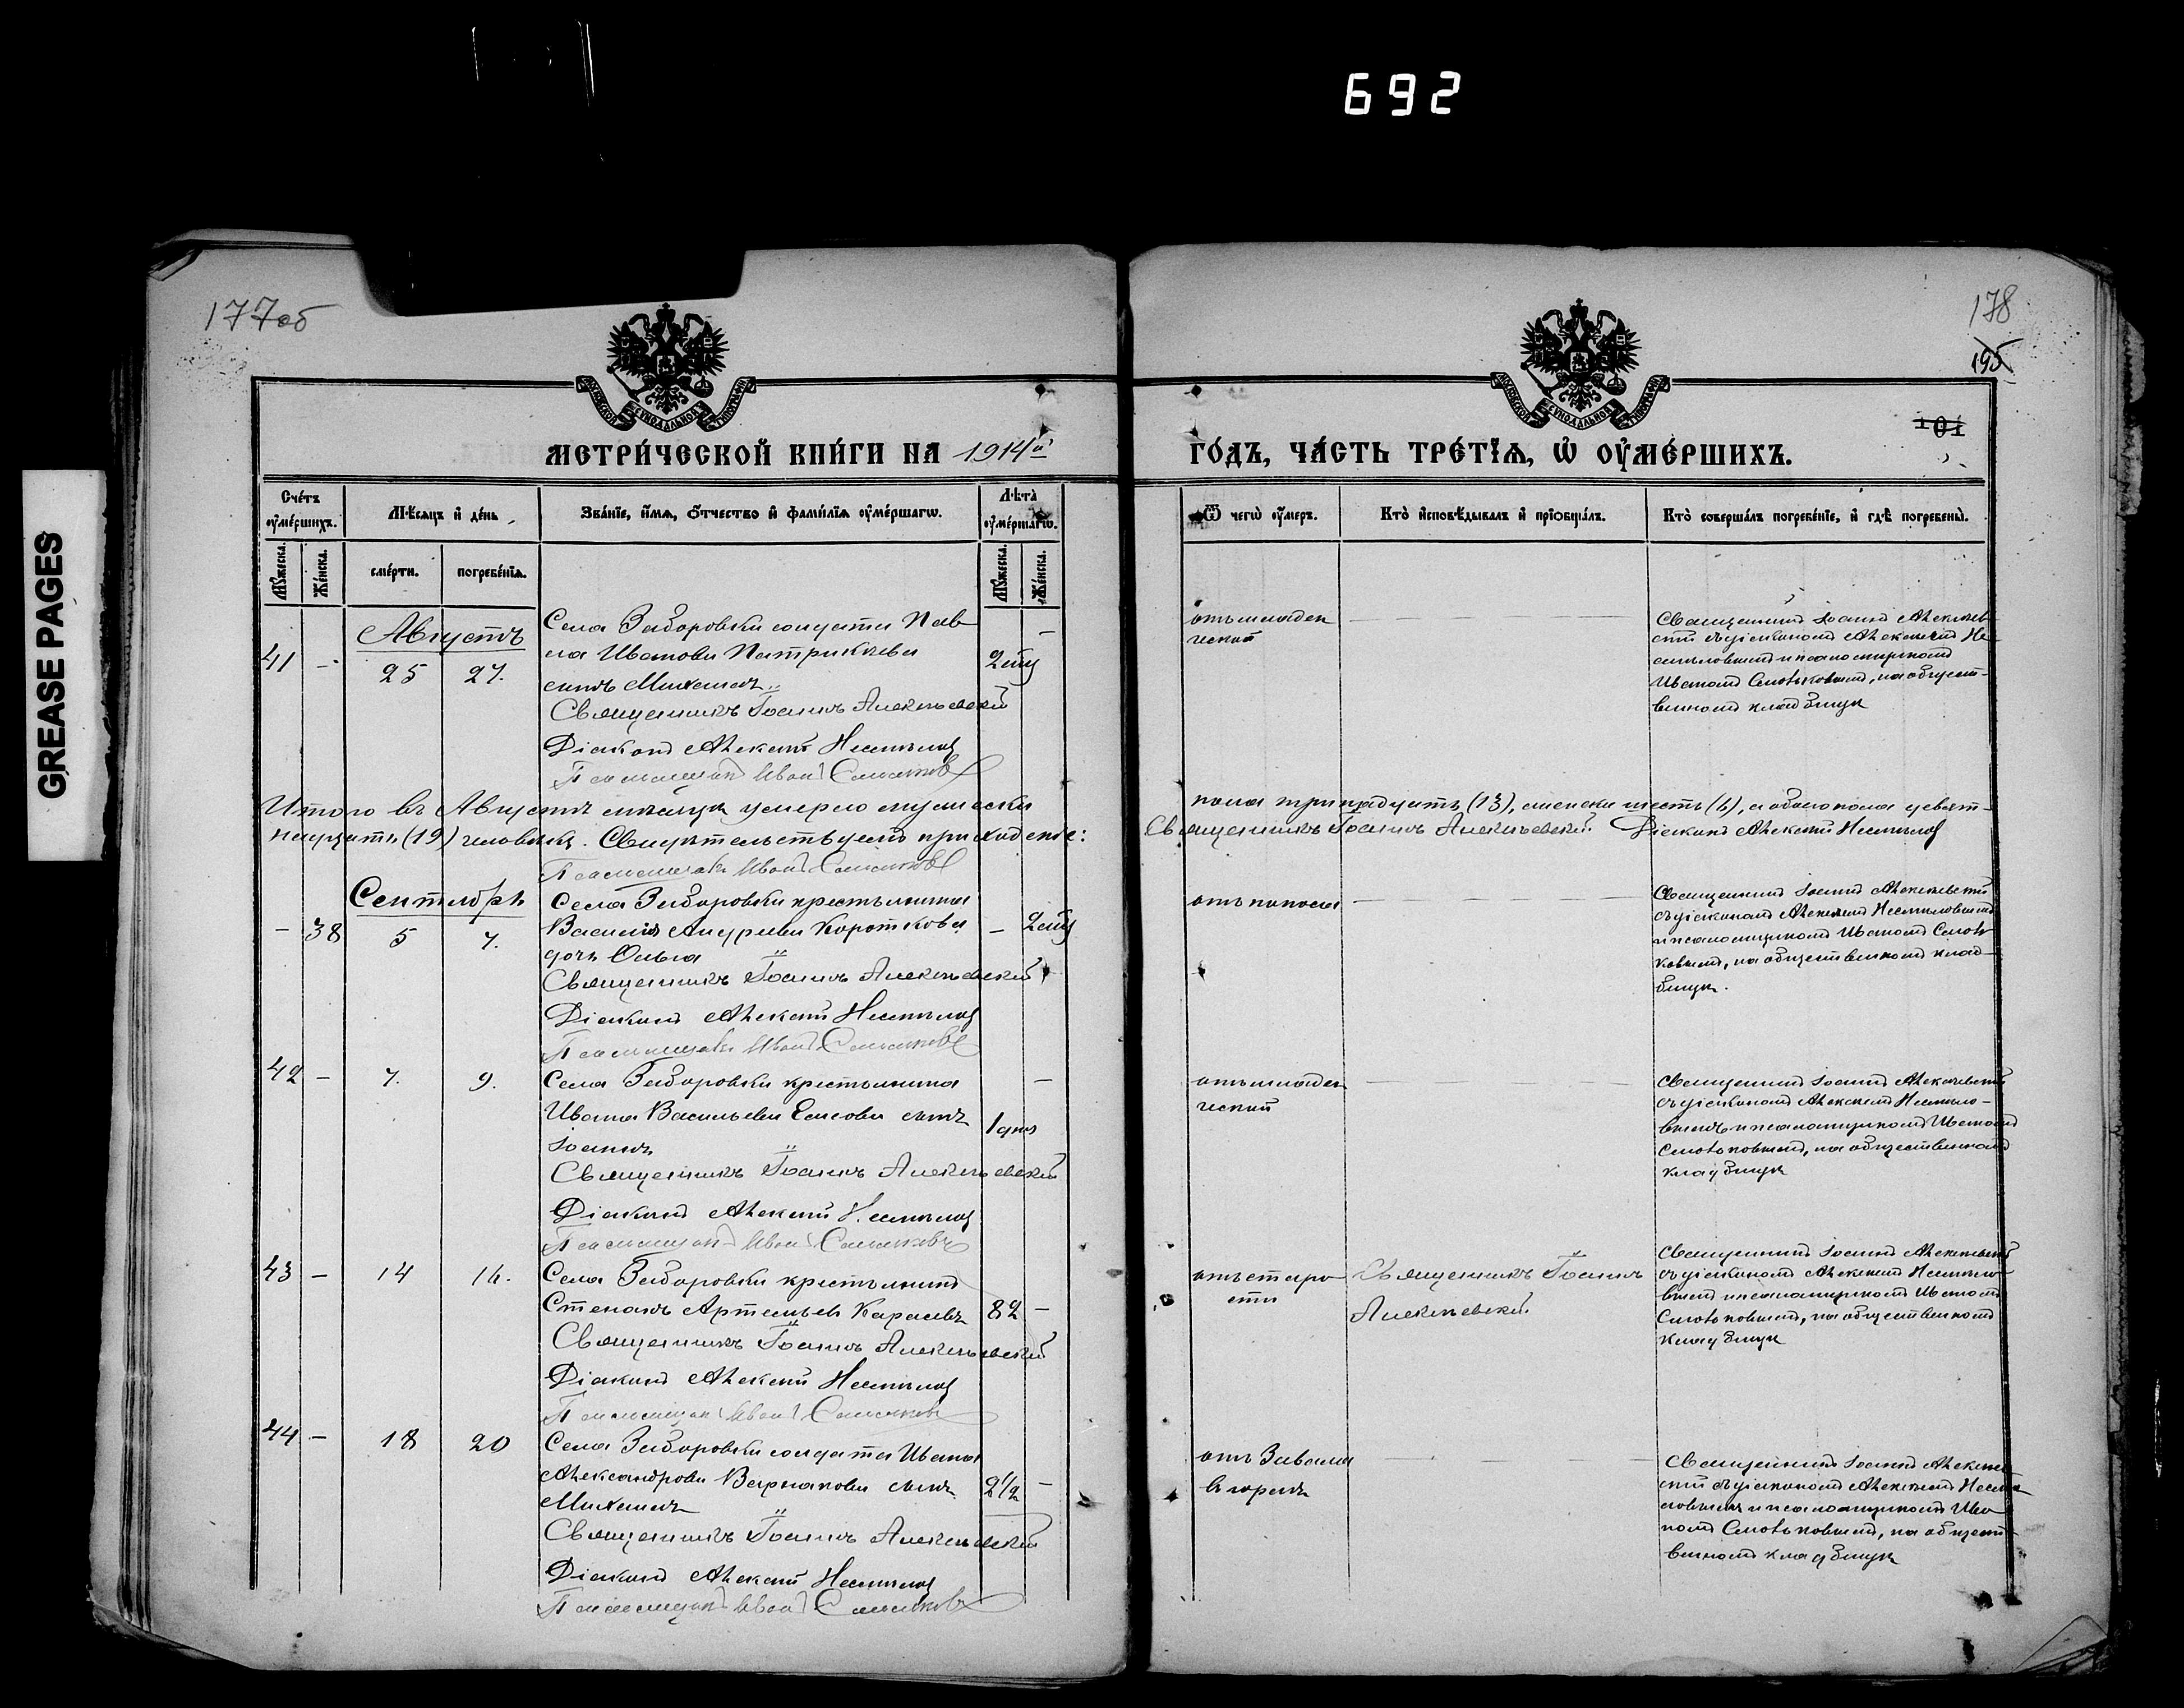 692
GREASE PAGES
177об
178
195
101
МОСКОВСКОЙ СѴНОДАЛЬНОЙ ТИПОГРАФІИ
МОСКОВСКОЙ СѴНОДАЛЬНОЙ ТИПОГРАФІИ
МЕТРИ́ЧЕСКОЙ КНИ́ГИ НА 1914й
ГО́ДЪ, ЧА́СТЬ ТРЕ́ТІѦ, Ѡ҆ ОУ҆МЕ́РШИХЪ.
Сче́тъ оу҆ме́ршихъ.
Мꙋ́жеска.
Же́нска.
Мѣ́сѧцъ и҆ де́нь
сме́рти.
погребе́нїѧ.
Зва́нїе, и҆́мѧ, ѻ҆́тчество и҆ фами́лїѧ оу҆ме́ршагѡ.
Лѣ́та оу҆ме́ршагѡ.
Мꙋ́жеска.
Же́нска.
Ѿ чегѡ̀ оу҆́меръ.
Кто̀ и҆сповѣ́дывалъ и҆ прїѡбща́лъ.
Кто̀ соверша́лъ погребе́нїе, и҆ гдѣ̀ погребены̀.
Августъ
41 - 25 27.
Села Заборовки солдата Пав-
ла Иванова Патрикѣева
сынъ Михаилъ
2 -
Священникъ Іоаннъ Алексѣевскій
Діаконъ Алексѣй Несмѣловъ
Псаломщикъ Иванъ
отъ младен
ческой
Священникъ Іоаннъ Алексѣев
скій съ діакономъ Алексѣемъ Не-
смѣловымъ и псаломщикомъ
Иваномъ на общест-
венномъ кладбищѣ
Итого въ Августѣ мѣсяцѣ умерло мужеска
пола тринадцать (13), женска шесть (6), а обоего пола девят-
надцать (19) человѣкъ. Свидѣтельствуемъ
Священникъ Іоаннъ Алексѣевскій. Діаконъ Алексѣй Несмѣловъ
Псаломщикъ Иванъ
Сентябрь
- 38 5 7.
Села Заборовки крестьянина
Василія Андреева Короткова
дочь Ольга
- 2
Священникъ Іоаннъ Алексѣевскій
Діаконъ Алексѣй Несмѣловъ
Псаломщикъ Иванъ
отъ поноса
Священникъ Іоаннъ Алексѣевскій
съ діакономъ Алексѣемъ Несмѣловымъ
и псаломщикомъ Иваномъ
на общественномъ клад-
бищѣ.
42 - 7. 9.
Села Заборовки крестьянина
Ивана Васильева сынъ
Іоаннъ
1 дня -
Священникъ Іоаннъ Алексѣевскій
Діаконъ Алексѣй Несмѣловъ
Псаломщикъ Иванъ
отъ младен
ческой
Священникъ Іоаннъ Алексѣевскій
съ діакономъ Алексѣемъ Несмѣло-
вымъ и псаломщикомъ Иваномъ
на общественномъ
кладбищѣ
43 - 14 16.
Села Заборовки крестьянинъ
Степанъ Артемьевъ Карасевъ
82 -
Священникъ Іоаннъ Алексѣевскій
Діаконъ Алексѣй Несмѣловъ
Псаломщикъ Иванъ
отъ старо
сти
Священникъ Іоаннъ
Алексѣевскій
Священникъ Іоаннъ Алексѣевскій
съ діакономъ Алексѣемъ Несмѣло-
вымъ и псаломщикомъ Иваномъ
на общественномъ
кладбищѣ
44 - 18 20
Села Заборовки солдата Ивана
Александрова сынъ
Михаилъ
2 1/2 -
Священникъ Іоаннъ Алексѣевскій
Діаконъ Алексѣй Несмѣловъ
Псаломщикъ Иванъ
отъ завала
въ горлѣ
Священникъ Іоаннъ Алексѣев
скій съ діакономъ Алексѣемъ Несмѣ-
ловымъ и псаломщикомъ Ива
номъ на общест-
венномъ кладбищѣ